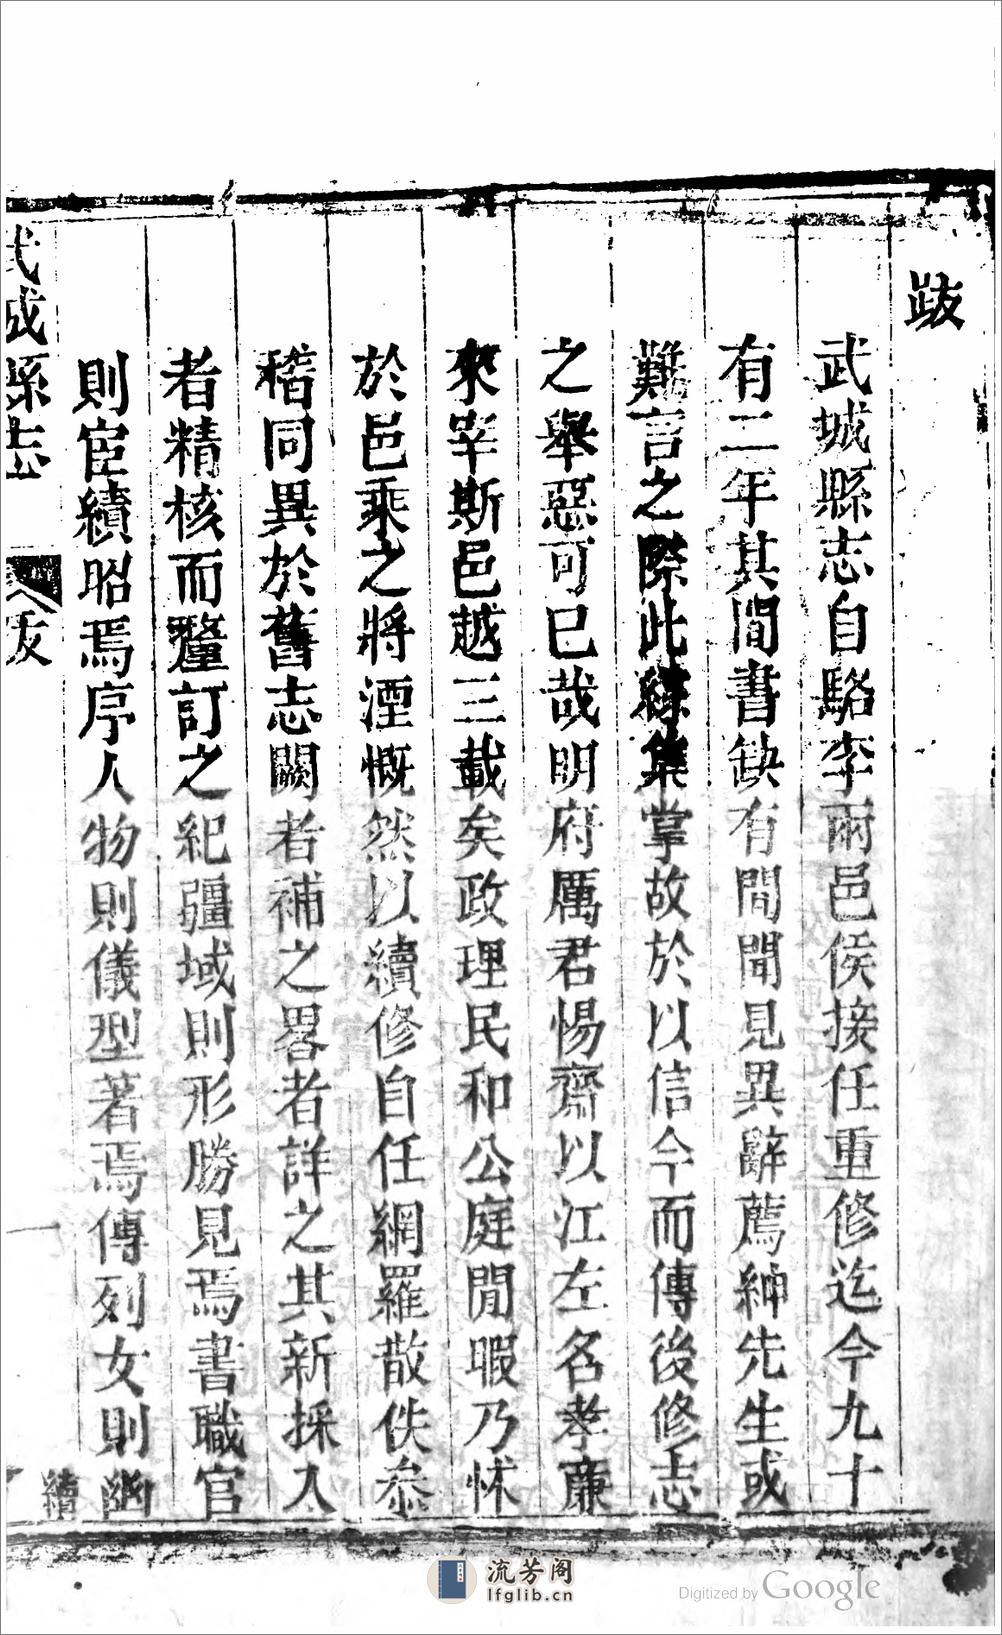 跋
武城縣志自駱李兩邑侯接任重修迄今九十
有二年其間書缺有間聞見異辭薦紳先生或
難言之際此採集掌故於以信今而傳後修志
之舉惡可已哉明府厲君惕齋以江左名孝廉
來宰斯邑越三載矣政理民和公庭閒暇乃怵
於邑乘之將湮慨然以續修自任網羅散佚叅
稽同異於舊志闕者補之畧者詳之其新採入
者精核而釐訂之紀疆域則形勝見焉書職官
則宦績昭焉序人物則儀型著焉傳列女則幽
武城縣志
跋
一
續
流芳阁
lfglib.cn
Digitized by Google